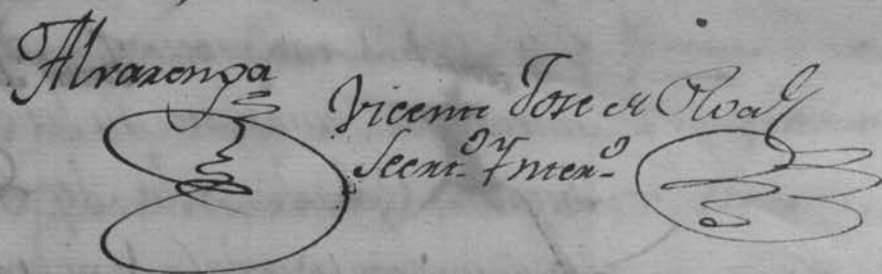 Alvarenga
Vicente Jose de
Secret.º Ynter.º